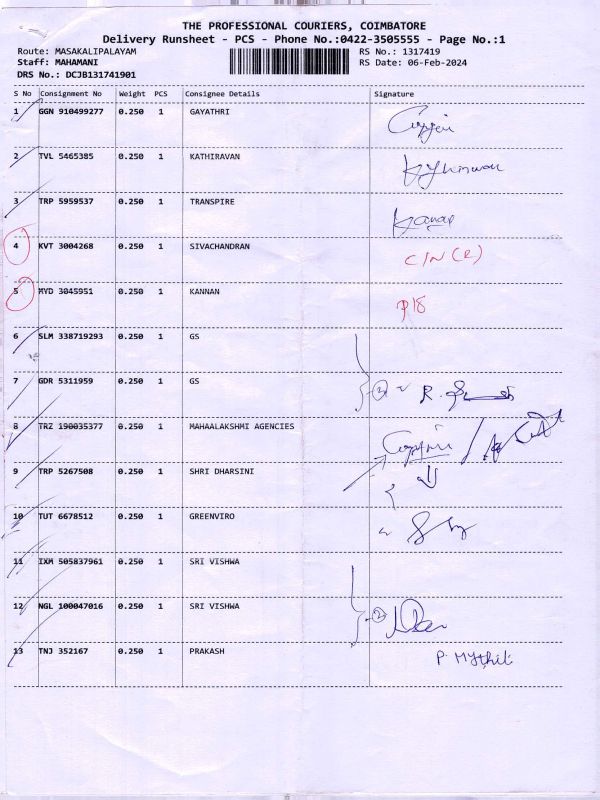 THE PROFESSIONAL COURIERS, COIMBATORE
Delivery Runsheet - PCS - Phone No.:0422-3505555 - Page No.:1
Route: MASAKALIPALAYAM RS No.: 1317419
Staff: MAHAMANI RS Date: 06-Feb-2024
DRS No.: DCJB131741901
S No Consignment No Weight PCS Consignee Details Signature
1 GGN 910499277 0.250 1 GAYATHRI
2 TVL 5465385 0.250 1 KATHIRAVAN
3 TRP 5959537 0.250 1 TRANSPIRE
4 KVT 3004268 0.250 1 SIVACHANDRAN C/N (R)
5 MYD 3045951 0.250 1 KANNAN
6 SLM 338719293 0.250 1 GS
7 GDR 5311959 0.250 1 GS 2 R.
8 TRZ 190035377 0.250 1 MAHAALAKSHMI AGENCIES
9 TRP 5267508 0.250 1 SHRI DHARSINI
10 TUT 6678512 0.250 1 GREENVIRO
11 IXM 505837961 0.250 1 SRI VISHWA
12 NGL 100047016 0.250 1 SRI VISHWA 2
13 TNJ 352167 0.250 1 PRAKASH P. Mythili